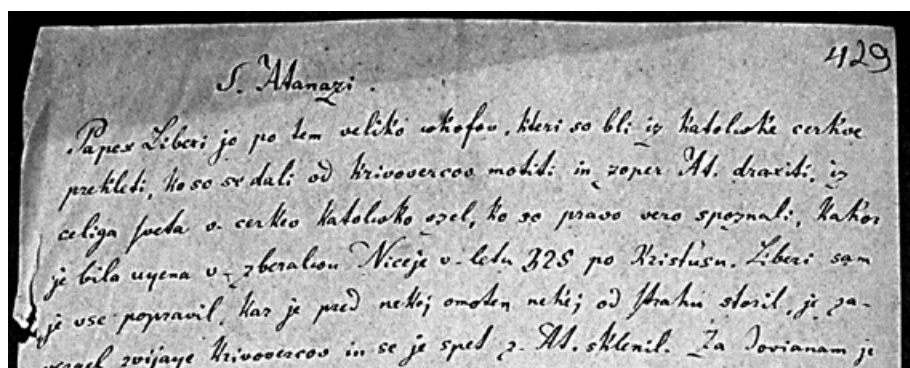 429
S. Atanazi.
Papex Liberi je po tem veliko ukofov, kteri so bli iz Katolwke cerkve
prekleti, ko so se dali od Krivovercov motiti in zoper At. draxiti, iz
celiga sveta v- cerkev Katolwko vzel, ko so pravo vero spoznali, Kakor
je bila uyena v- zberalwu Niceje v- letu 325 po Kristusu. Liberi sam
je vse popravil, Kar je pred nekoj omoten nekej od strahu storil, je za-
zvijaye Krivovercov in se je spet z- At. sklenil. Za Jovianam je